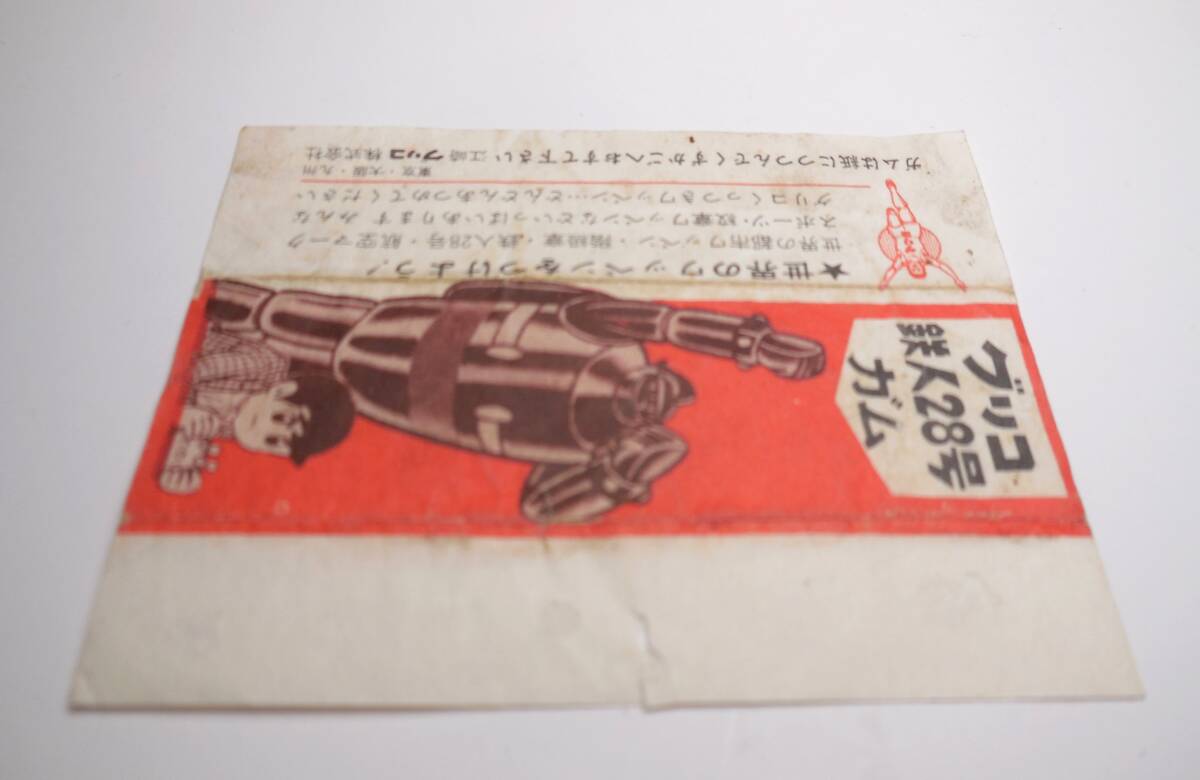 グリコ
鉄人28号
ガム
★世界のワッペンをつけよう!
世界の都市ワッペン・階級章・鉄人28号・航空マーク
スポーツ・紋章ワッペンなどいっぱいあります みんな
グリコくっつきワッペン…どんどんあつめてください
東京・大阪・九州
ガムは紙につつんでくずかごへおすて下さい 江崎グリコ株式会社